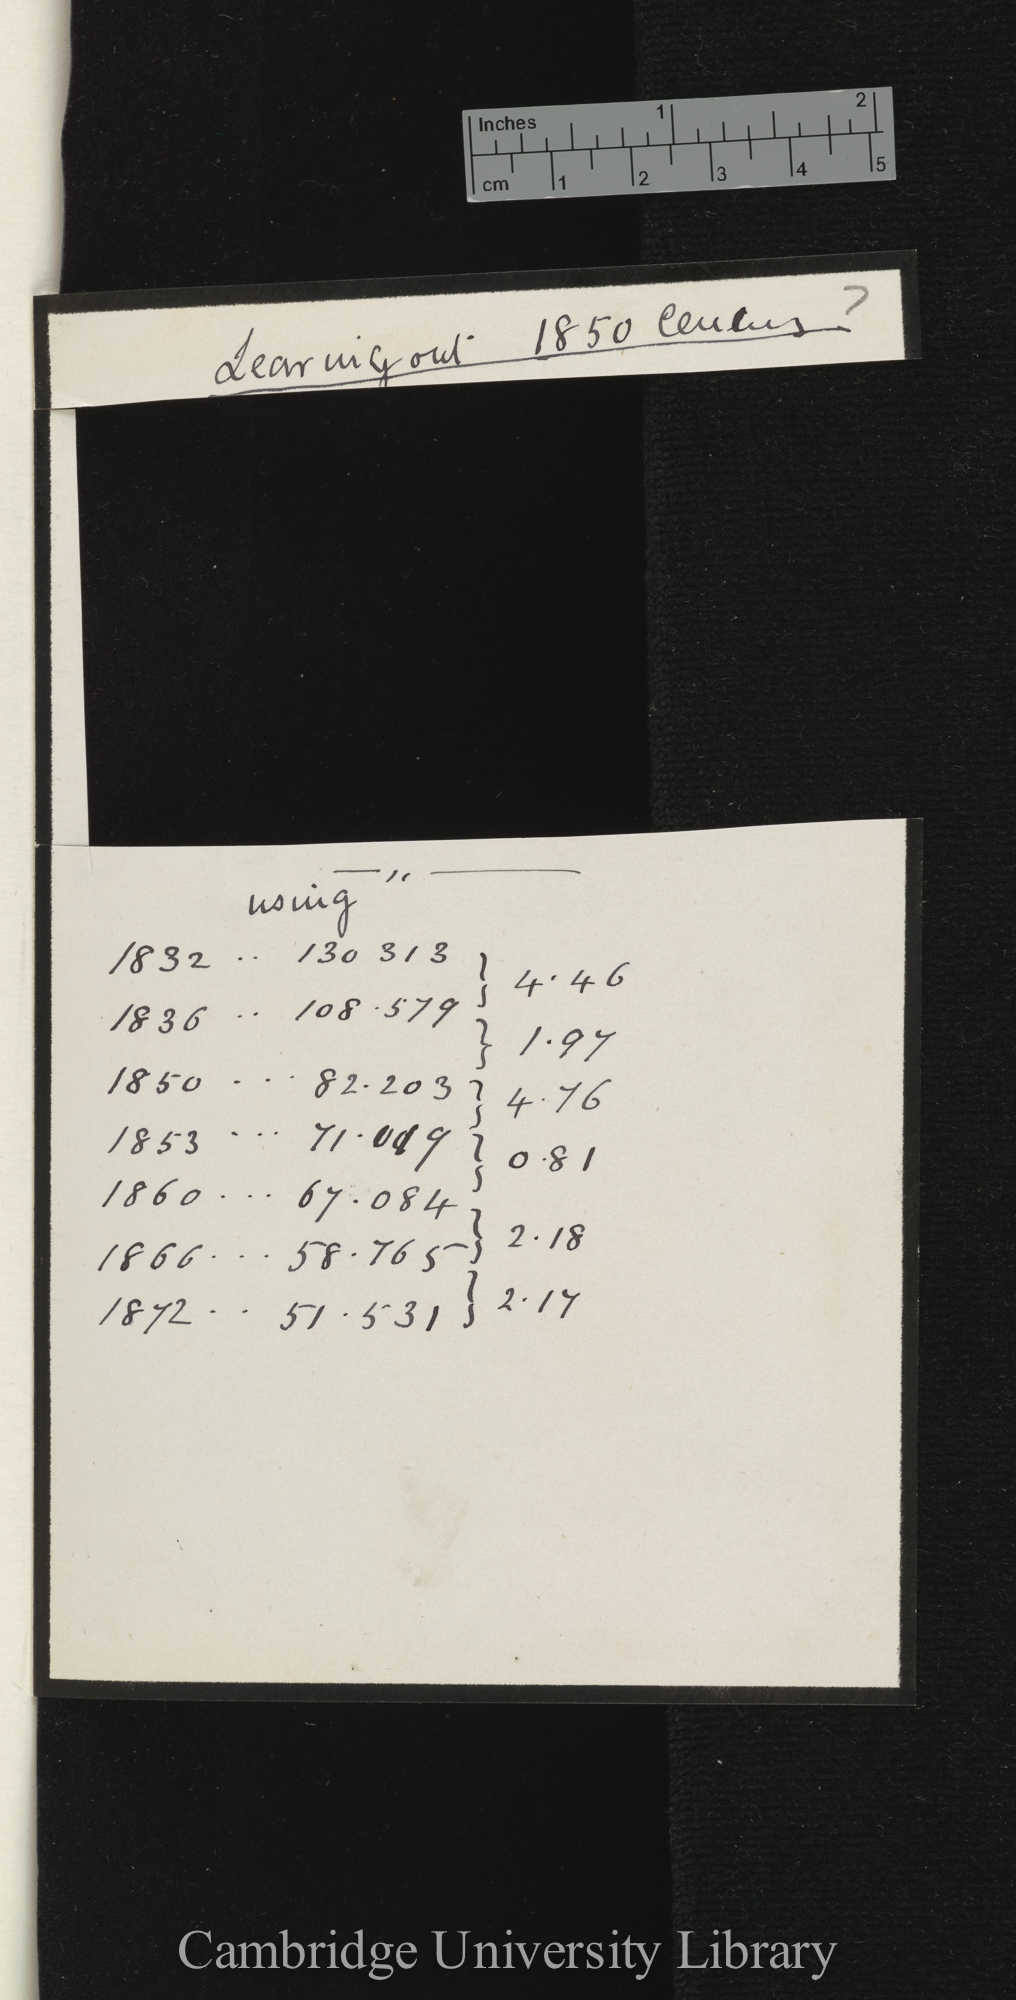 Inches 1 2
cm 1 2 3 4 5
Leaving out 1850 Census ?
— " —
using
1832 .. 130 313 } 4.46
1836 .. 108.579 } 1.97
1850 ... 82.203 } 4.76
1853 ... 71.019 } 0.81
1860 ... 67.084 } 2.18
1866 ... 58.765 } 2.17
1872 .. 51.531
Cambridge University Library